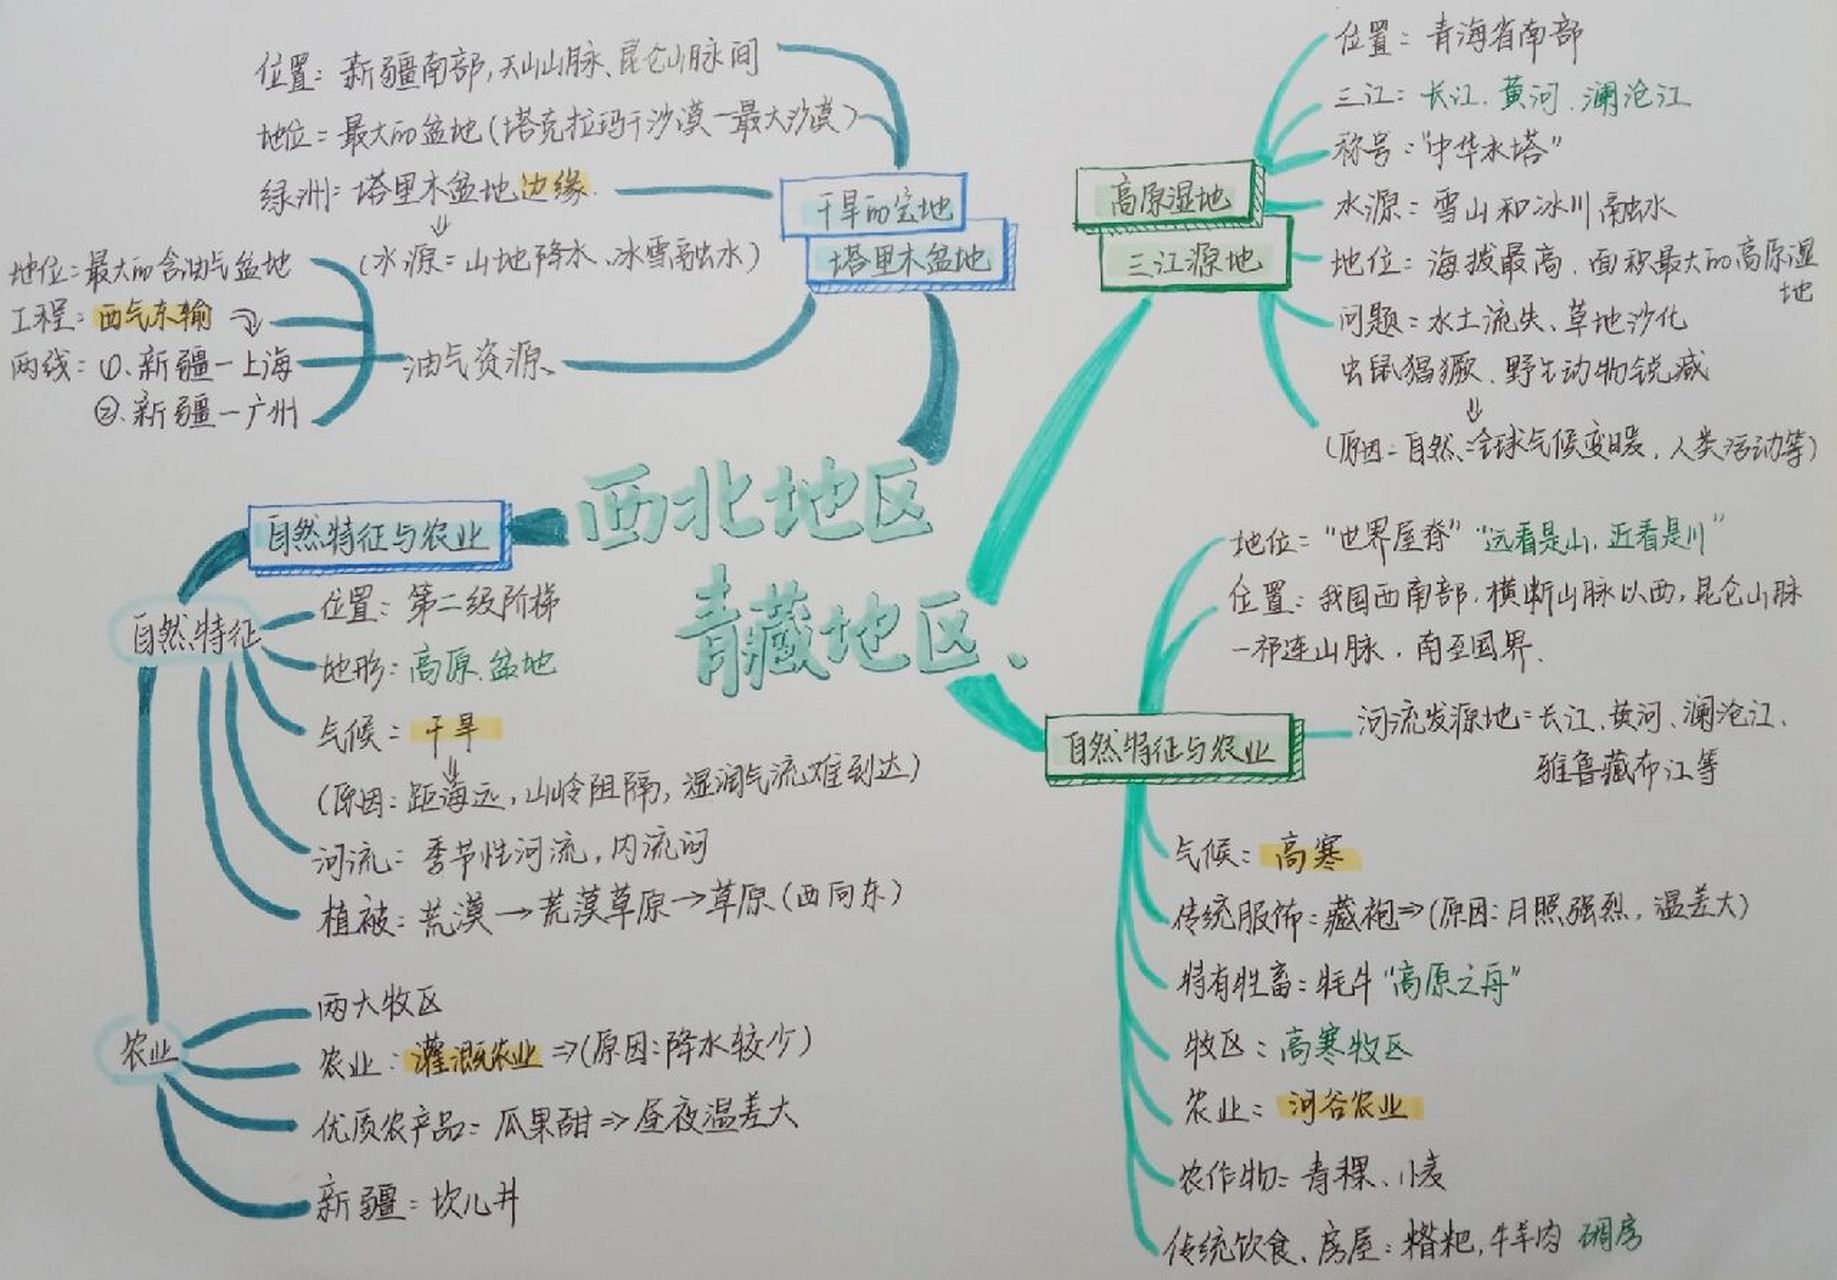 西北地区
青藏地区、
干旱的宝地
塔里木盆地
位置：新疆南部，天山山脉、昆仑山脉间
地位：最大的盆地（塔克拉玛干沙漠—最大沙漠）
绿洲：塔里木盆地边缘.
（水源：山地降水、冰雪融水）
油气资源、
地位：最大的含油气盆地
工程：西气东输
两线：①、新疆—上海
②、新疆—广州
自然特征与农业
自然特征
位置：第二级阶梯
地形：高原、盆地
气候：干旱
（原因：距海远，山岭阻隔，湿润气流难到达）
河流：季节性河流，内流河
植被：荒漠→荒漠草原→草原（西向东）
农业
两大牧区
农业：灌溉农业⇒（原因：降水较少）
优质农产品：瓜果甜⇒昼夜温差大
新疆：坎儿井
高原湿地
三江源地
位置：青海省南部
三江：长江、黄河、澜沧江
称号：“中华水塔”
水源：雪山和冰川融水
地位：海拔最高、面积最大的高原湿
地
问题：水土流失、草地沙化
虫鼠猖獗、野生动物锐减
（原因：自然、全球气候变暖，人类活动等）
自然特征与农业
地位：“世界屋脊”“远看是山，近看是川”
位置：我国西南部，横断山脉以西，昆仑山脉
—祁连山脉，南至国界.
河流发源地：长江、黄河、澜沧江、
雅鲁藏布江等
气候：高寒
传统服饰：藏袍⇒（原因：日照强烈，温差大）
特有牲畜：牦牛“高原之舟”
牧区：高寒牧区
农业：河谷农业
农作物：青稞、小麦
传统饮食、房屋：糌粑，牛羊肉 碉房